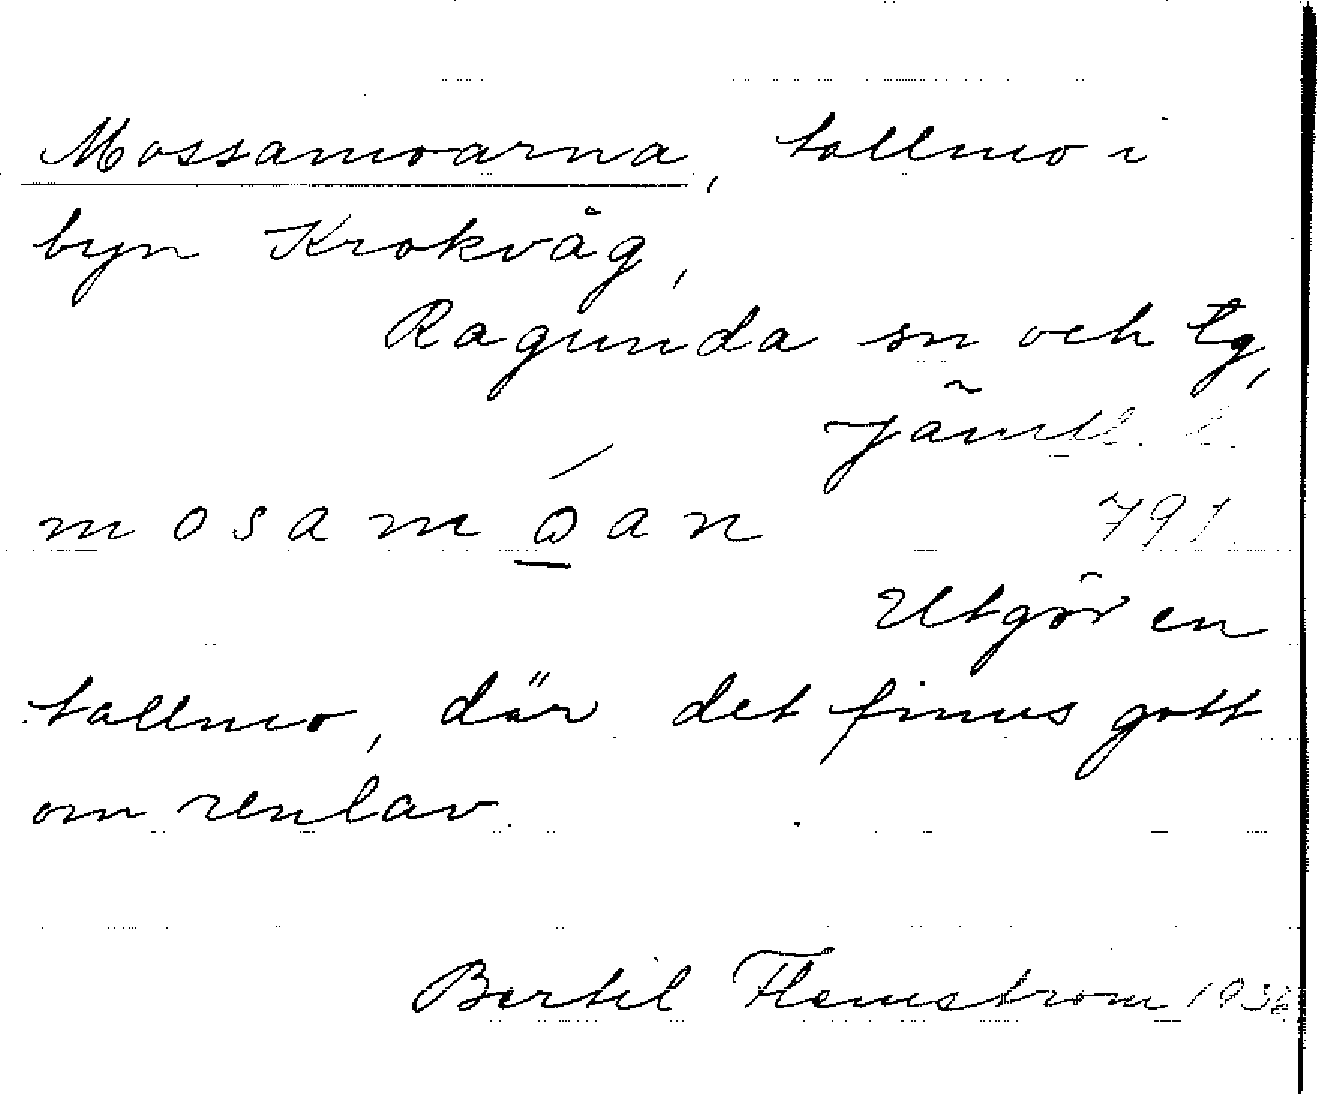 Mossamoarna, tallmo i
byn Krokvåg,
Ragunda sn och tg,
Jämtl. l.
mosamóan
791
Utgör en
tallmo, där det finns gott
om renlav.
Bertil Flemström